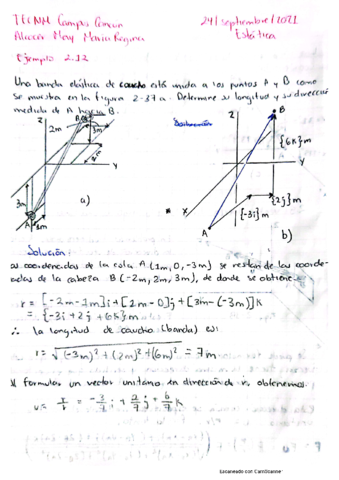 TECNM Campus Cancún
24/septiembre/2021
Alcocer May María Regina
Estática
Ejemplo 2.12
Una banda elástica de caucho está unida a los puntos A y B como
se muestra en la figura 2-37 a. Determine su longitud y su dirección
medida de A hacia B.
Z
B
2m
3m
Y
3m
A
a)
Z
B
{6k}m
Y
X
{2j}m
{-3i}m
A
b)
Solución:
coordenadas de la cola A (1m, 0, -3m) se restan de las coorde-
adas de la cabeza B (-2m, 2m, 3m), de donde se obtiene
r = [-2m - 1m]i + [2m - 0]j + [3m - (-3m)]k
= {-3i + 2j + 6k}m
∴ la longitud de caucho (banda) es:
r = √(-3m)² + (2m)² + (6m)² = 7m
formulas un vector unitario en dirección de r, obtenemos
u = r/r = -3/7 i + 2/7 j + 6/7 k
Escaneado con CamScanner